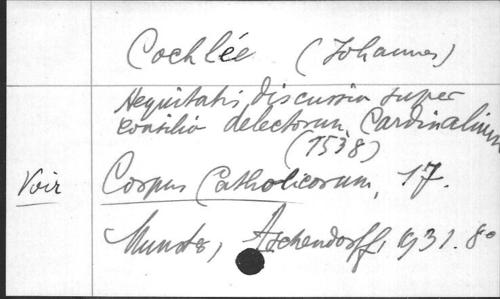 Cochlée (Johannes)
Aequitatis discussio super
consilio delectorum Cardinalium
(1538)
Voir Corpus Catholicorum, 17.
Munster, Aschendorff, 1931. 8°